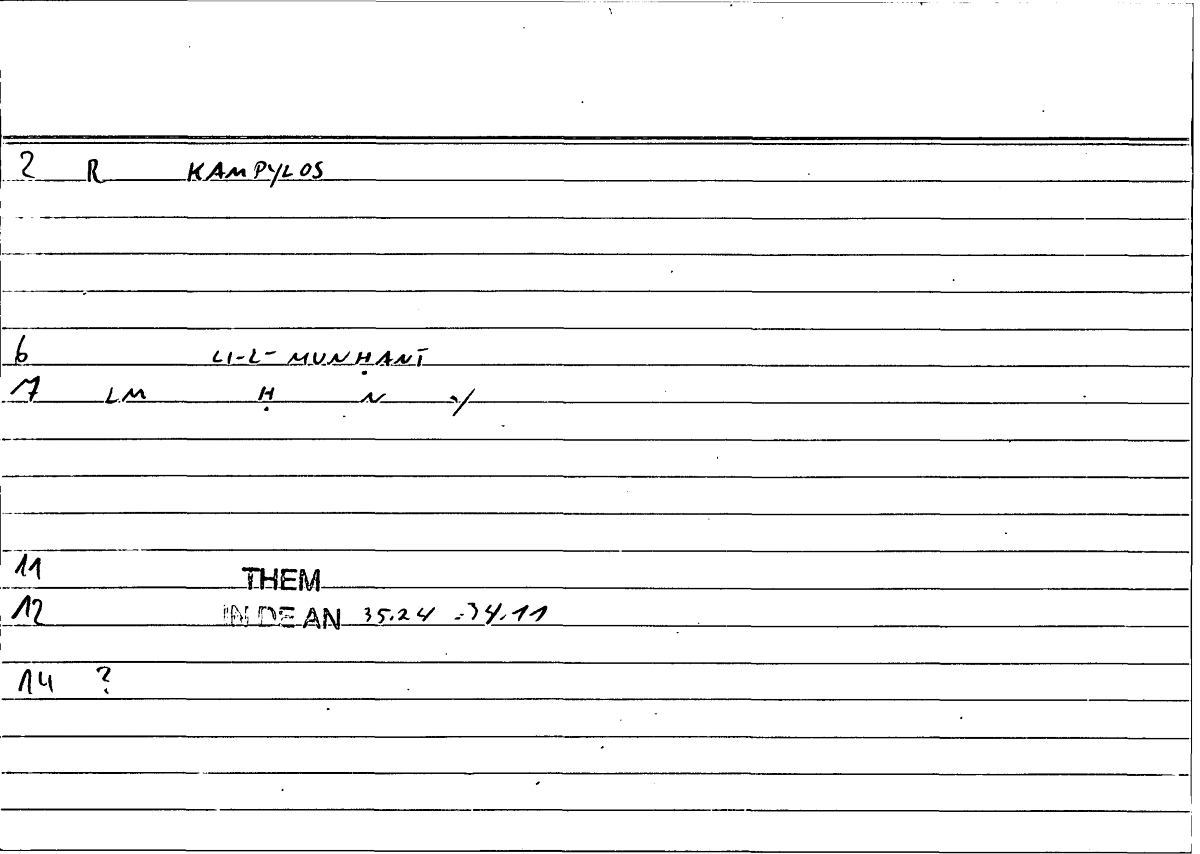 2 R KAMPYLOS
6 LI-L- MUNḤANĪ
7 LM Ḥ N Y
11 THEM
12 IN DE AN 35.24 = 34.11
14 ?